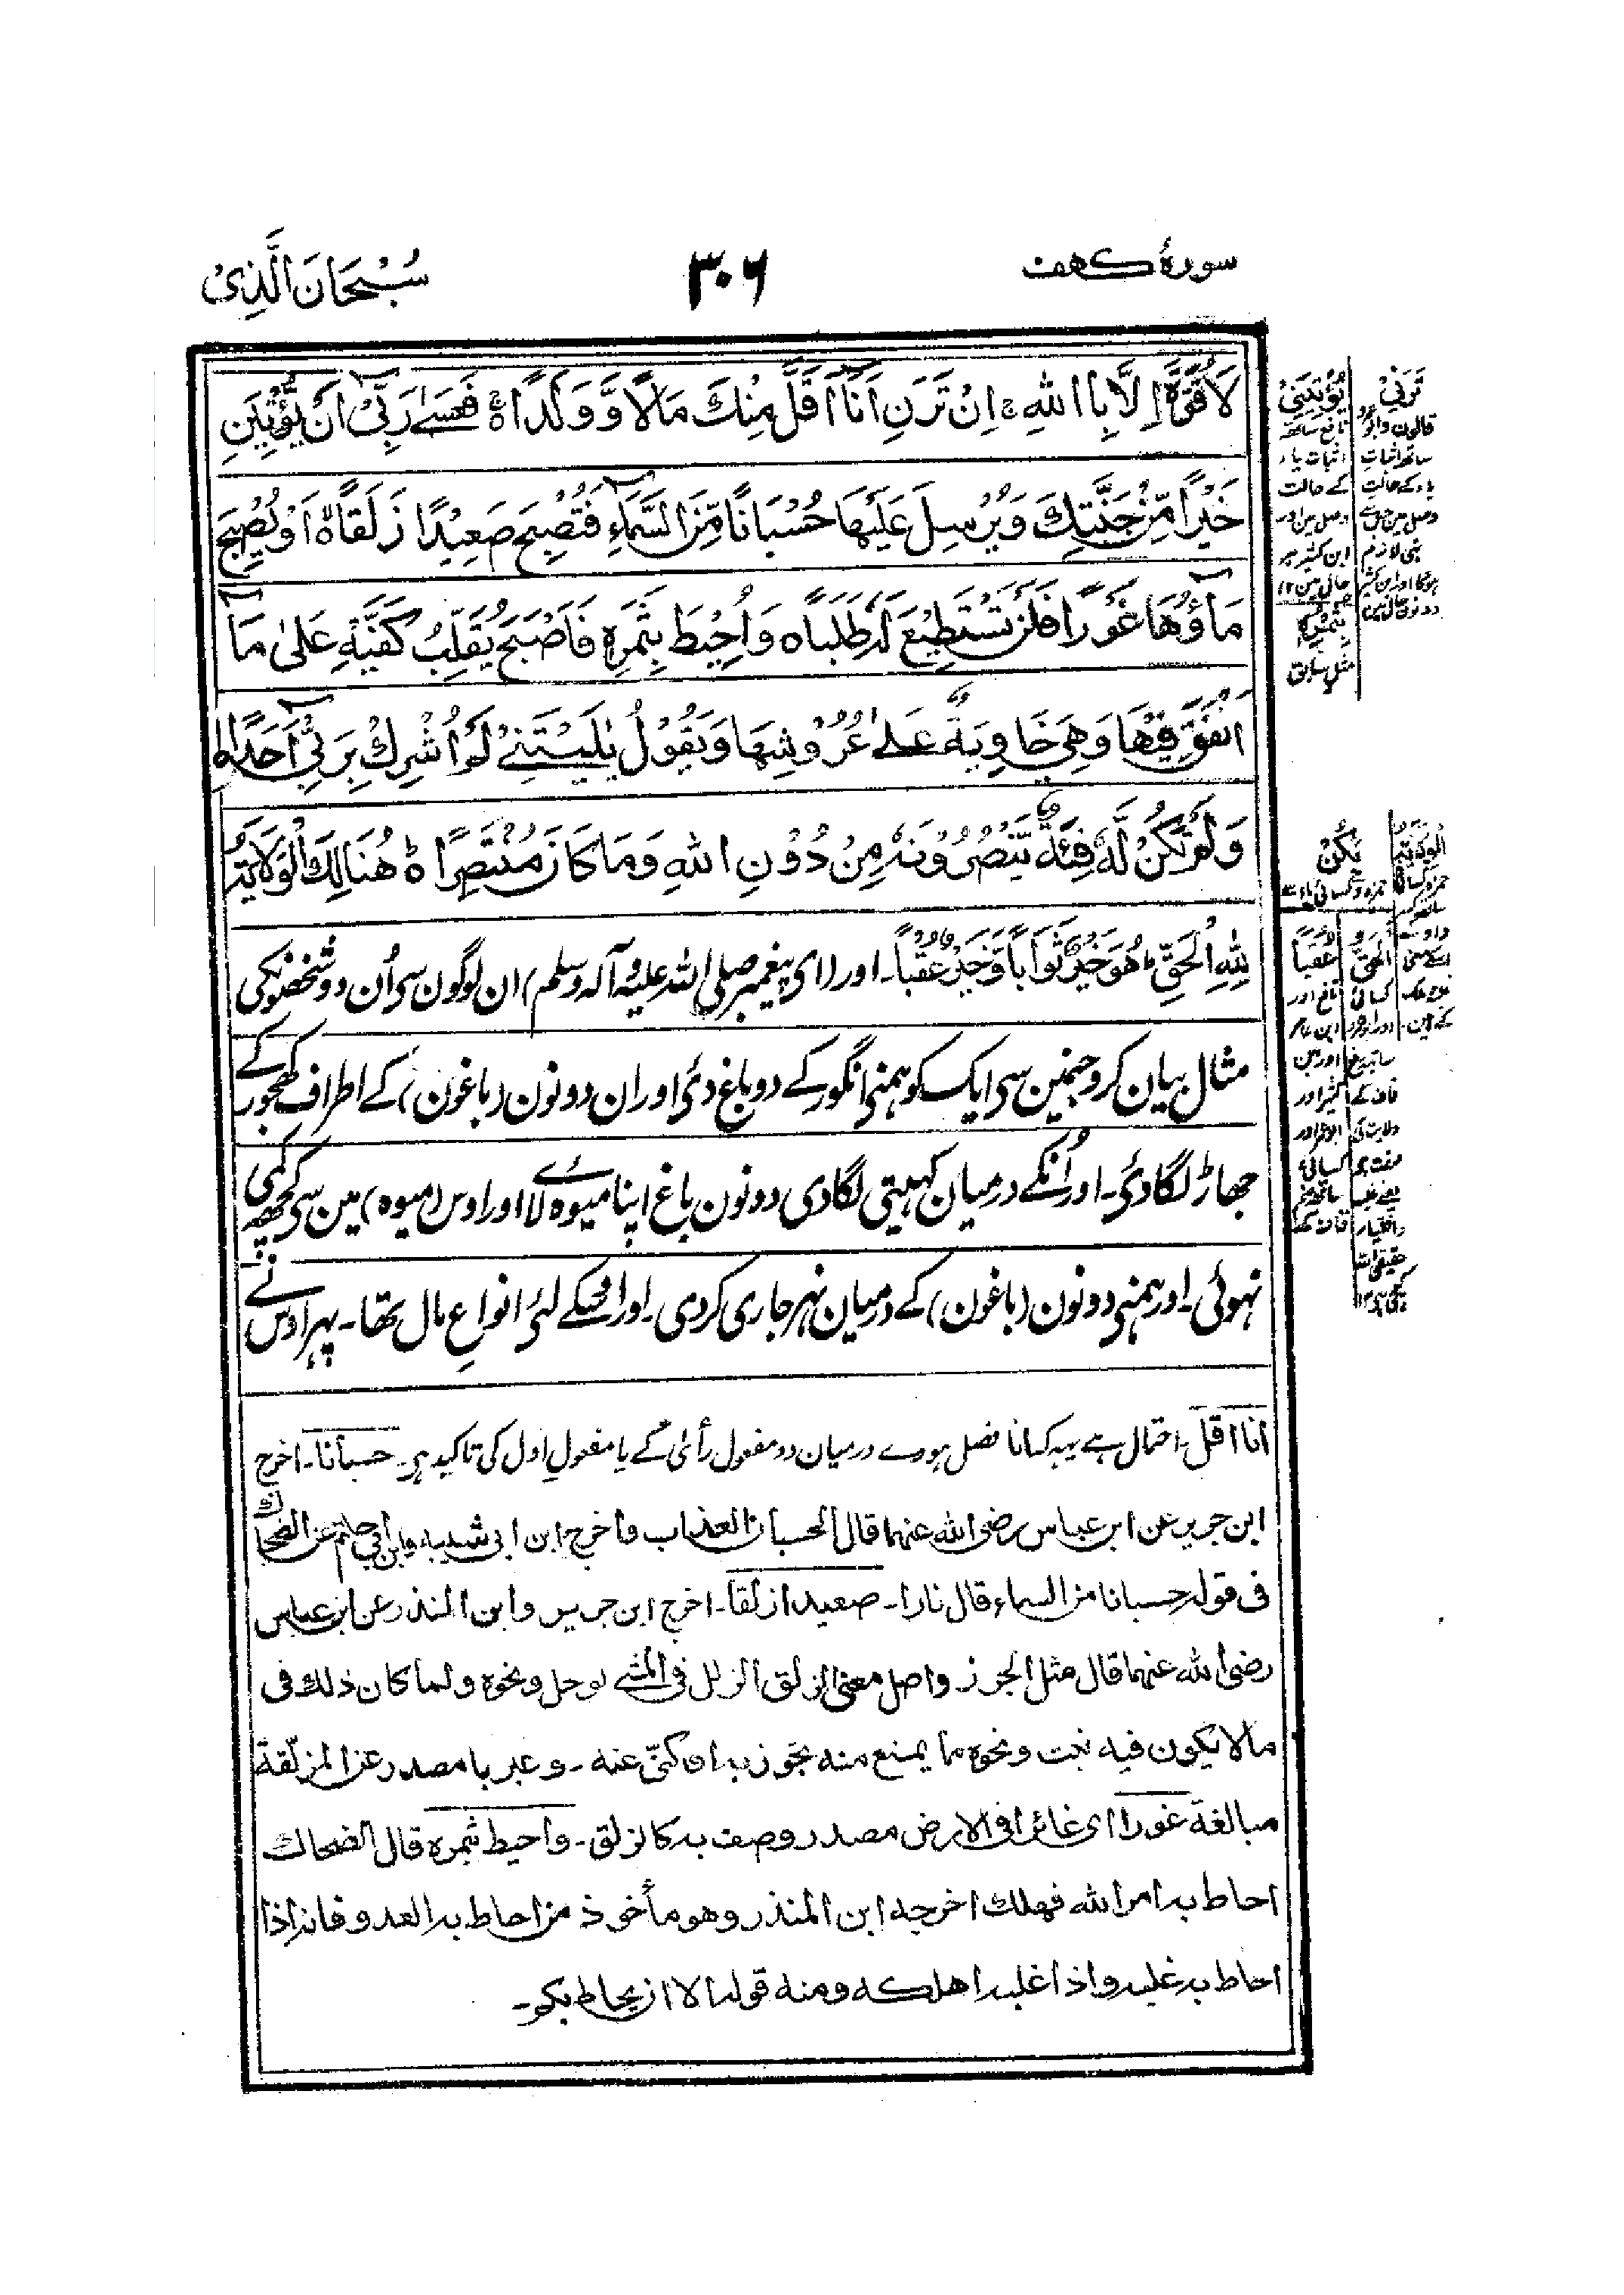 سورۂ کہف
۳۰۶
سُبْحَانَ الَّذِیْ
لَا قُوَّةَ اِلَّا بِاللهِ ۚ اِنْ تَرَنِ اَنَا اَقَلَّ مِنْكَ مَالًا وَّ وَلَدًا ۝ۚ فَعَسٰى رَبِّیْٓ اَنْ یُّؤْتِیَنِ
خَیْرًا مِّنْ جَنَّتِكَ وَیُرْسِلَ عَلَیْهَا حُسْبَانًا مِّنَ السَّمَآءِ فَتُصْبِحَ صَعِیْدًا زَلَقًا ۝ۙ اَوْ یُصْبِحَ
مَآؤُهَا غَوْرًا فَلَنْ تَسْتَطِیْعَ لَهٗ طَلَبًا ۝ وَاُحِیْطَ بِثَمَرِهٖ فَاَصْبَحَ یُقَلِّبُ كَفَّیْهِ عَلٰى مَآ
اَنْفَقَ فِیْهَا وَهِیَ خَاوِیَةٌ عَلٰى عُرُوْشِهَا وَیَقُوْلُ یٰلَیْتَنِیْ لَمْ اُشْرِكْ بِرَبِّیْٓ اَحَدًا ۝
وَلَمْ تَكُنْ لَّهٗ فِئَةٌ یَّنْصُرُوْنَهٗ مِنْ دُوْنِ اللهِ وَمَا كَانَ مُنْتَصِرًا ۝ؕ هُنَالِكَ الْوَلَایَةُ
لِلّٰهِ الْحَقِّ ؕ هُوَ خَیْرٌ ثَوَابًا وَّخَیْرٌ عُقْبًا۔ اور (ای پیغمبر صلی اللہ علیہ وآلہ وسلم) ان لوگون سی اُن دو شخصونکی
مثال بیان کرو جنمین سی ایک کو ہمنی انگور کے دو باغ دئی اور ان دونون (باغون) کے اطراف کھجور کے
جھاڑ لگادئ۔ اور اُنکے درمیان کہیتی لگادی دونون باغ اپنا میوہ لائے اور اوس (میوہ) مین سی کچھہ کمی
نہوئی۔ اور ہمنی دونون (باغون) کے درمیان نہر جاری کردی۔ اور اسکے لئی انواع مال تھا۔ پہر اوس نے
انا اقل۔ احتمال ہے یہہ کہ انا فصل ہووے درمیان دو مفعول رأی کے یا مفعول اول کی تاکید ہی۔ حسبانا۔ اخرج
ابن جریر عن ابن عباس رضی الله عنهما قال الحسبان العذاب واخرج ابن ابی شیبه وابن ابی حاتم عن الضحاك
فی قوله حسبانا من السماء قال نارا۔ صعیدا زلقا۔ اخرج ابن جریر وابن المنذر عن ابن عباس
رضی الله عنهما قال مثل الجرز واصل معنی الزلق الزلل فی المشی لوحل ونحوه ولما كان ذلك فی
مالا یكون فیه نبت ونحوه مما یمنع منه تجوز به او كنی عنه۔ وعبر بالمصدر عن المزلقة
مبالغة غورا ای غائرا فی الارض مصدر وصف به كالزلق۔ واحیط ثمره قال الضحاك
احاط به امر الله فهلك اخرجه ابن المنذر وهو مأخوذ من احاط به العدو فانه اذا
احاط به غلبه واذا غلبه اهلكه ومنه قوله الا ان یحاط بكم۔
تَرَنِیْ
قالون وابو
ساتھ اثبات
یاء کے حالت
وصل مین
یُؤْتِیَنِیْ
نافع ساتھہ
اثبات یاء
کے حالت
وصل مین اور
ابن کثیر ہر
حالی مین ۱۲
بِثَمَرِهٖ
مثل سابق
یَكُنْ
حمزہ وکسائی یاء سے
اَلْوِلَایَةُ
حمزہ وکسائی
اَلْحَقُّ
عُقُبًا
نافع اور